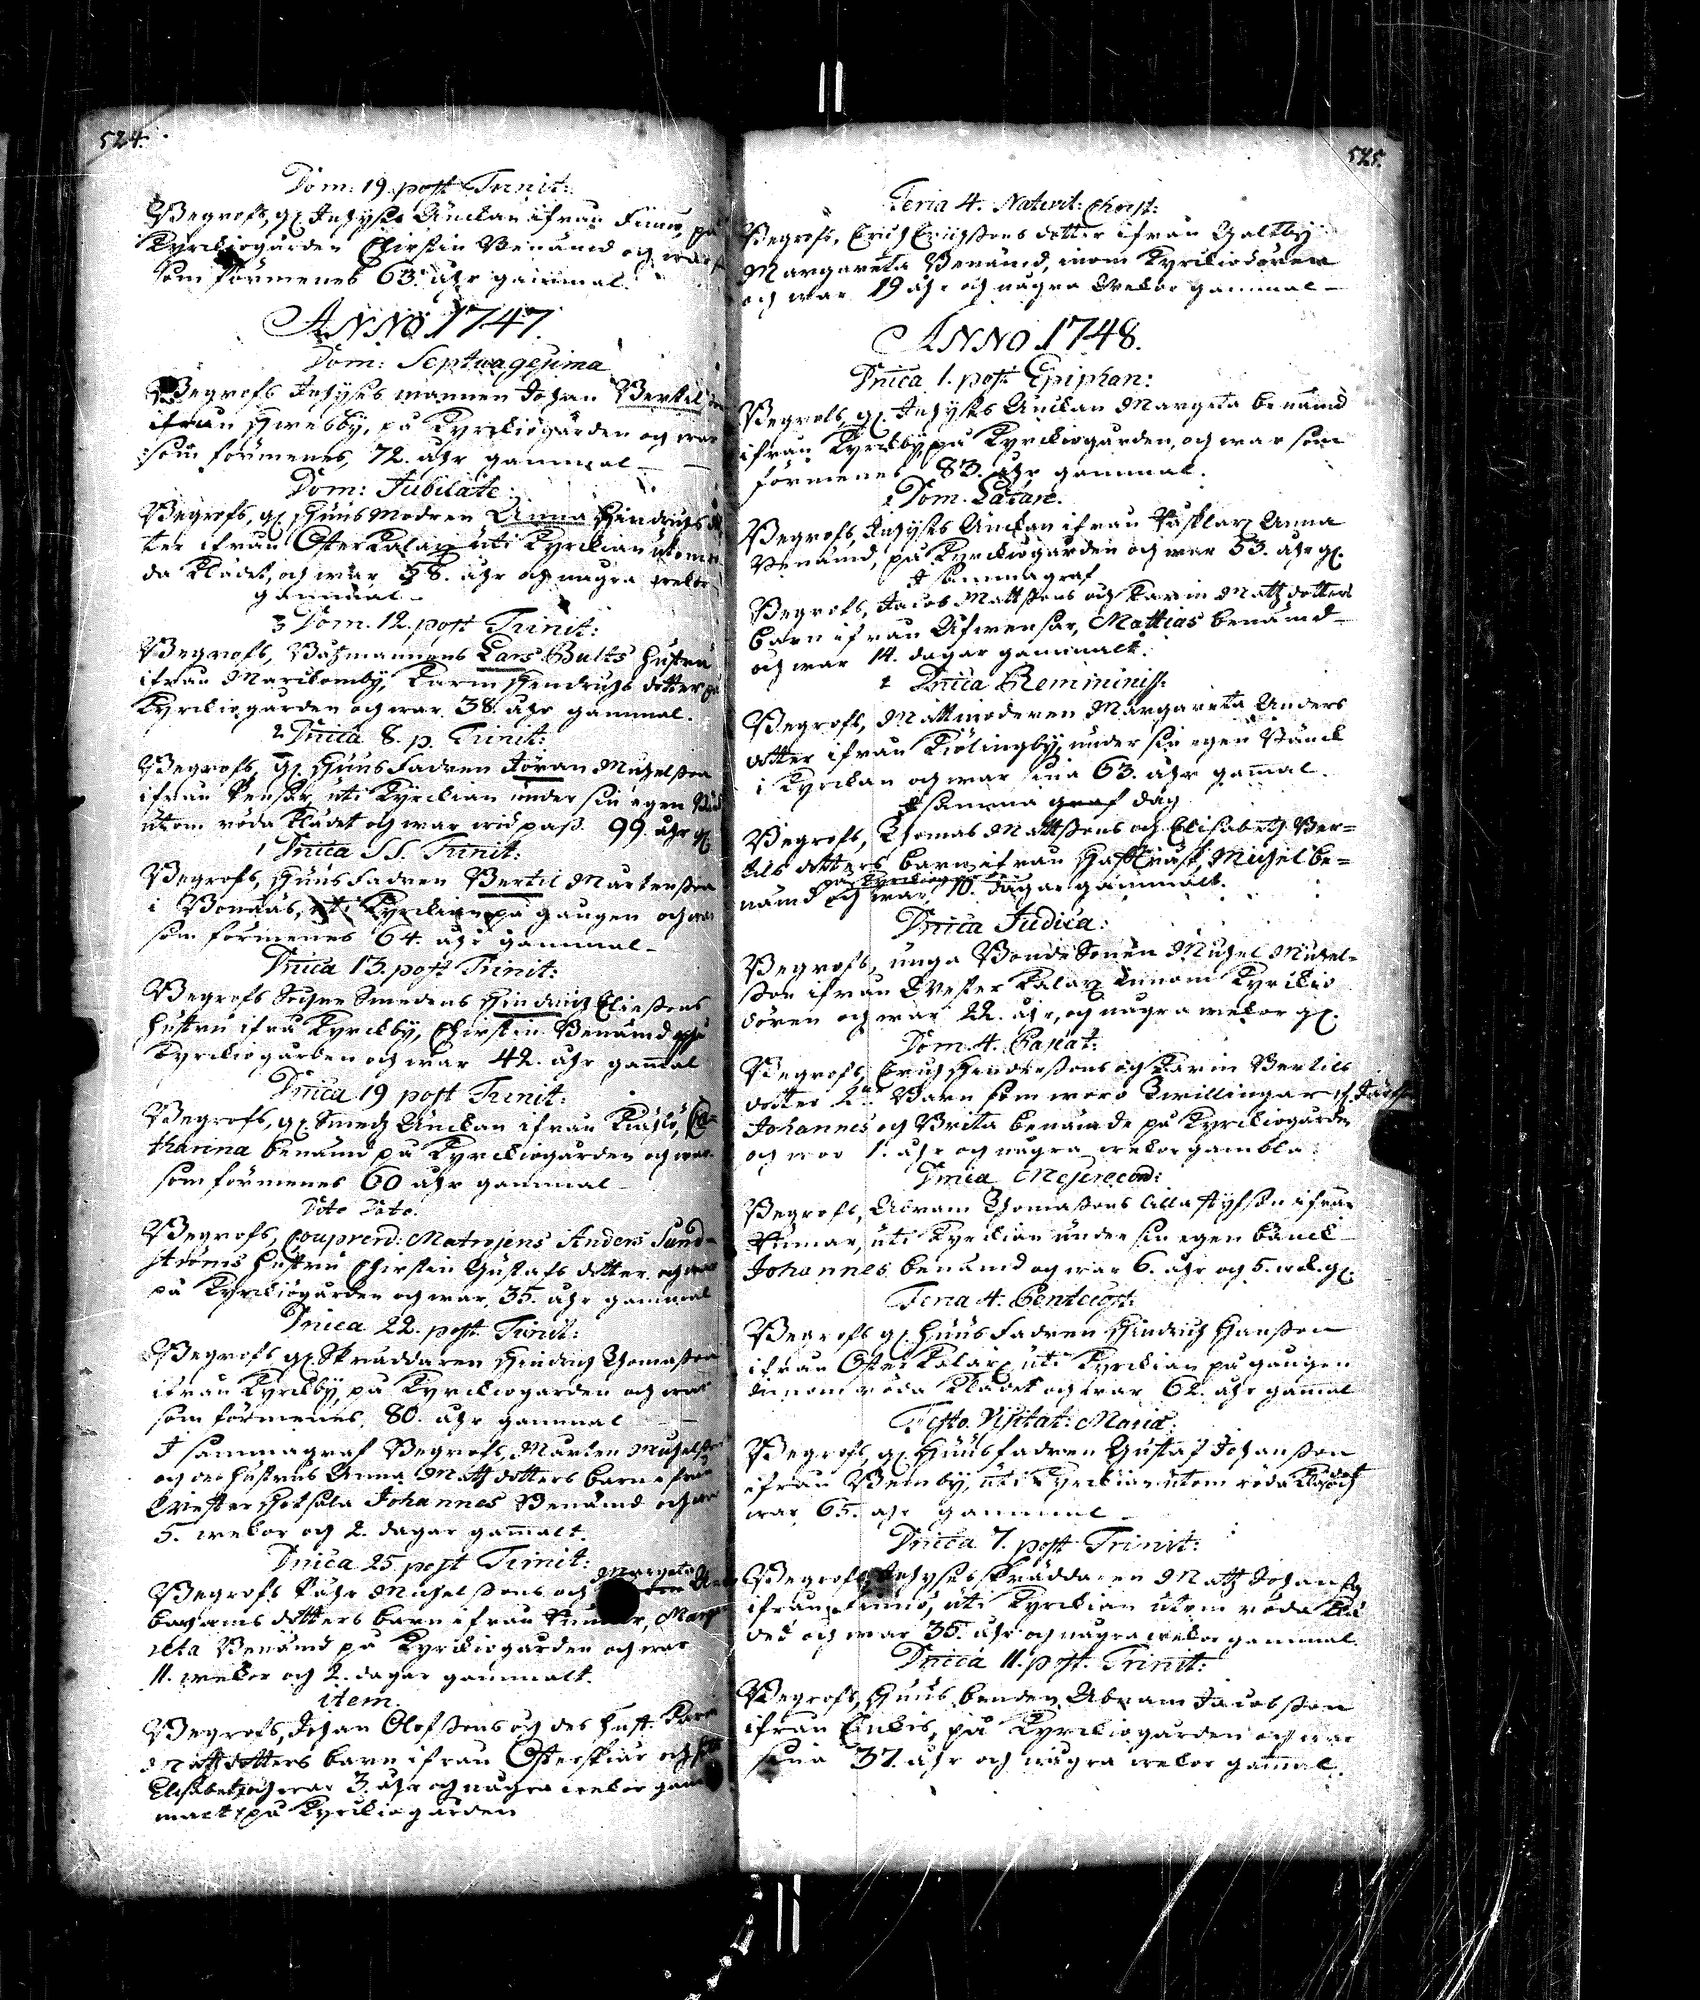 524.
Dom: 19. post Trinit:
Begrofs, gl. Inhyses Änckan ifrån Finnö, på
Kyrckiogården Chirstin Benämd och war
som förmenes 63. åhr gammal.
ANNO 1747.
Dom: Septuagesima
Begrofs Inhyses mannen Johan Bertilsson
ifrån på Kyrckiogården och war
som förmenes, 72. åhr gammal
Dom: Jubilate
Begrofs, gl. Huusmodren Anna Hindrichs dot
ter ifrån Österkalax uti Kyrckian utom rö
da Klädet, och war 58. åhr och några wekor
gammal
3 Dom. 12. post Trinit:
Begrofs, Båtzmannens Lars Bults hustru
ifrån Marckomby, Karin Hendrichs dotter på
Kyrckiogården och war 38 åhr gammal.
2 Dnica 8. p. Trinit:
Begrofs, gl. Huusfadren Jöran Michelsson
ifrån uti Kyrckian under sin egen
utom röda klädet och war wid pass 99. åhr gl.
1 Dnica SS. Trinit:
Begrofs, Huusfadren Bertil Mårtensson
i Bonäås, uti Kyrckian på gången och war
som förmenes 64. åhr gammal
Dnica 13. post Trinit:
Begrofs Sochne Smedens Hindrich Eliessons
hustru ifrå Kyrckby, Chirstin Benämd på
Kyrckiogården och war 42. åhr gammal
Dnica 19 post Trinit:
Begrofs, gl. Smedz Änckan ifrån Ca-
tharina benämd på Kyrckiogården och war
som förmenes 60 åhr gammal
Dito Dito.
Begrofs, Matrosens Anders Sund-
ströms hustru Chirstin Gustafs dotter
på Kyrckiogården och war, 35. åhr gammal
Dnica 22. post Trinit:
Begrofs gl. Skräddaren Hindrich Thomasson
ifrån Kyrckby, på Kyrckiogården och war
som förmenes, 80. åhr gammal
I samma graf Begrofs, Mårten Michelssons
och des hustrus Anna Matz dotters barn ifrån
Wester Johannes Benämd och war
5. wekor och 2. dagar gammalt.
Dnica 25 post Trinit:
Margeta
Begrofs Michelssons och
dotters barn ifrån Marg
reta Benämd på Kyrckiogården och war
11. wekor och 2. dagar gammalt.
item.
Begrofs, Johan Olofssons och des hust. Karin
Mattzdotters barn ifrån Österskiär och
Elisabet, och war 3. åhr och några wekor gam
malt på Kyrckiogården
525.
Feria 4. Nativit: Christ:
Begrofs, Erich Erichssons dotter ifrån Galtby
Margareta Benämd, inom Kyrckiodören
och war 19 åhr och några wekor gammal
ANNO 1748.
Dnica 1. post Epiphan:
Begrofs, gl. Inhyses Änckan Margeta benämd
ifrån Kyrckby, på Kyrckiogården, och war som
förmenes 83. åhr gammal.
2 Dom. Lætare.
Begrofs, Inhyses Änckan ifrån Anna
Benämd, på Kyrckiogården och war 53. åhr gl.
I samma graf
Begrofs, Jacob Mattssons och Karin Matz dotters
barn ifrån Mattias benämd
och war 14. dagar gammalt.
1 Dnica Reminisc.
Begrofs, Margareta Anders
dotter ifrån Kiölingby, under sin egen Bänck
i Kyrckan och war sina 63. åhr gammal.
samma graf dag
Begrofs, Thomas Mattssons och Elisabeth Ber=
tils dotters barn ifrån Michel be=
på Kyrckiogården
nämd och war 10. dagar gammalt.
Dnica Judica:
Begrofs, unga Bonde Sonen Michel Michel-
sson ifrån Wester Kalax innom Kyrckio
dören och war 22. åhr, och några wekor gl.
Dom. 4. Papat:
Begrofs, Erich Hinderssons och Karin Bertils
dotter 2ne Barn som woro Zwillingar
Johannes och Brita benämde på Kyrckiogården
och woro 1. åhr och några wekor gambla
Dnica Misericord:
Begrofs, Abram Thomassons ifrån
uti Kyrckian under sin egen bänck
Johannes benämd och war 6. åhr och 5. wek. gl.
Feria 4. Pentecost:
Begrofs gl. Huusfadren Hindrich Hansson
ifrån Österkalax uti Kyrckian på gången
innom röda Klädet och war 62. åhr gammal
Festo Visitat: Mariæ.
Begrofs, gl. Huusfadren Gustaf Johansson
ifrån Bemby, uti Kyrckian utom röda Klädet och
war 65. åhr gammal
Dnica 7. post Trinit:
Begrofs Inhyses Skräddaren Matz Johansson
ifrån uti Kyrckian utom röda Klä
det och war 35. åhr och några wekor gammal.
Dnica 11. post. Trinit:
Begrofs, Huusbonden Abram Jacobsson
ifrån Enkis, på Kyrckiogården och war
sina 37. åhr och några wekor gammal.